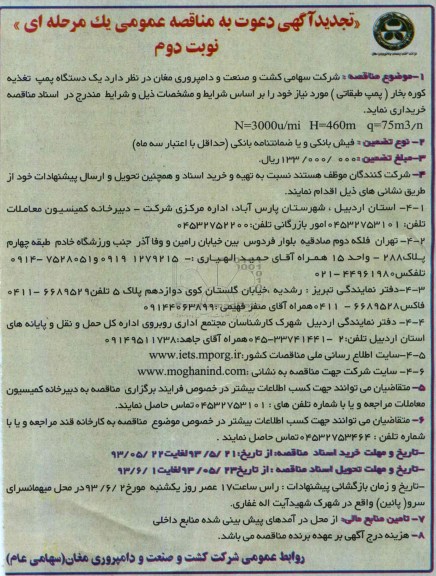 «تجدیدآگهی دعوت به مناقصه عمومی یك مرحله ای»
نوبت دوم
۱-موضوع مناقصه: شرکت سهامی کشت و صنعت و دامپروری مغان در نظر دارد یک دستگاه پمپ تغذیه
کوره بخار ( پمپ طبقاتی ) مورد نیاز خود را بر اساس شرایط و مشخصات ذیل و شرایط مندرج در اسناد مناقصه
خریداری نماید.
N=3000u/mi H=460m q=75m3/n
۲- نوع تضمین: فیش بانکی و یا ضمانتنامه بانکی (حداقل با اعتبار سه ماه)
۳-مبلغ تضمین: ۱۳۳/۰۰۰/۰۰۰ ریال.
۴- شرکت کنندگان موظف هستند نسبت به تهیه و خرید اسناد و همچنین تحویل و ارسال پیشنهادات خود از
طریق نشانی های ذیل اقدام نمایند.
۴-۱- استان اردبیل ، شهرستان پارس آباد، اداره مرکزی شرکت - دبیرخانه کمیسیون معاملات
تلفن: ۰۴۵۳۲۷۵۳۱۰۱ امور بازرگانی تلفن: ۰۴۵۳۲۷۵۲۲۰۰
۴-۲- تهران فلکه دوم صادقیه بلوار فردوس بین خیابان رامین و وفا آذر جنب ورزشگاه خادم طبقه چهارم
پلاک۲۸۸ - واحد ۱۵ همراه آقای حمید الهیاری :- ۱۲۷۹۲۱۵ ۰۹۱۹ و۷۵۲۸۰۵۱ -۰۹۱۴
تلفکس۴۴۹۶۱۹۸۰ -۰۲۱
۴-۳-دفتر نمایندگی تبریز : رشدیه ،خیابان گلستان کوی دوازدهم پلاک ۵ تلفن۶۶۸۹۵۲۹ -۰۴۱۱
فاکس ۶۶۸۹۵۲۸ - ۰۴۱۱همراه آقای صنفر فهیمی :۰۹۱۴۴۰۶۳۸۹۹
۴-۴- دفتر نمایندگی اردبیل شهرک کارشناسان مجتمع اداری روبروی اداره کل حمل و نقل و پایانه های
استان اردبیل تلفن:۲ -۳۳۷۴۱۴۴۱-۰۴۵همراه آقای جاهد:۰۹۱۴۹۵۱۱۷۳۸
۴-۵-سایت اطلاع رسانی ملی مناقصات کشور:www.iets.mporg.ir
۴-۶- سایت شرکت جهت مناقصه به نشانی :www.moghanind.com
۵- متقاضیان می توانند جهت کسب اطلاعات بیشتر در خصوص فرایند برگزاری مناقصه به دبیرخانه کمیسیون
معاملات مراجعه و یا با شماره تلفن های : ۰۴۵۳۲۷۵۳۱۰۱ تماس حاصل نمایند.
۶- متقاضیان می توانند جهت کسب اطلاعات بیشتر در خصوص موضوع مناقصه به کارخانه قند مراجعه و یا با
شماره تلفن : ۰۴۵۳۲۷۵۳۴۶۴ تماس حاصل نمایند .
-تاریخ و مهلت خرید اسناد مناقصه: از تاریخ: ۹۳/۵/۲۱ لغایت۹۳/۰۵/۲۲
-تاریخ و مهلت تحویل اسناد مناقصه : از تاریخ۹۳/۰۵/۲۳ لغایت۹۳/۶/۱
-تاریخ و زمان بازگشائی پیشنهادات : راس ساعت۱۷ عصر روز یکشنبه مورخ۹۳/۶/۲ در محل میهمانسرای
سرو( پائین) واقع در شهرک شهیدآیت اله غفاری.
۷- تامین منابع مالی: از محل در آمدهای پیش بینی شده منابع داخلی
۸- هزینه درج آگهی بر عهده برنده مناقصه می باشد.
روابط عمومی شرکت کشت و صنعت و دامپروری مغان(سهامی عام)